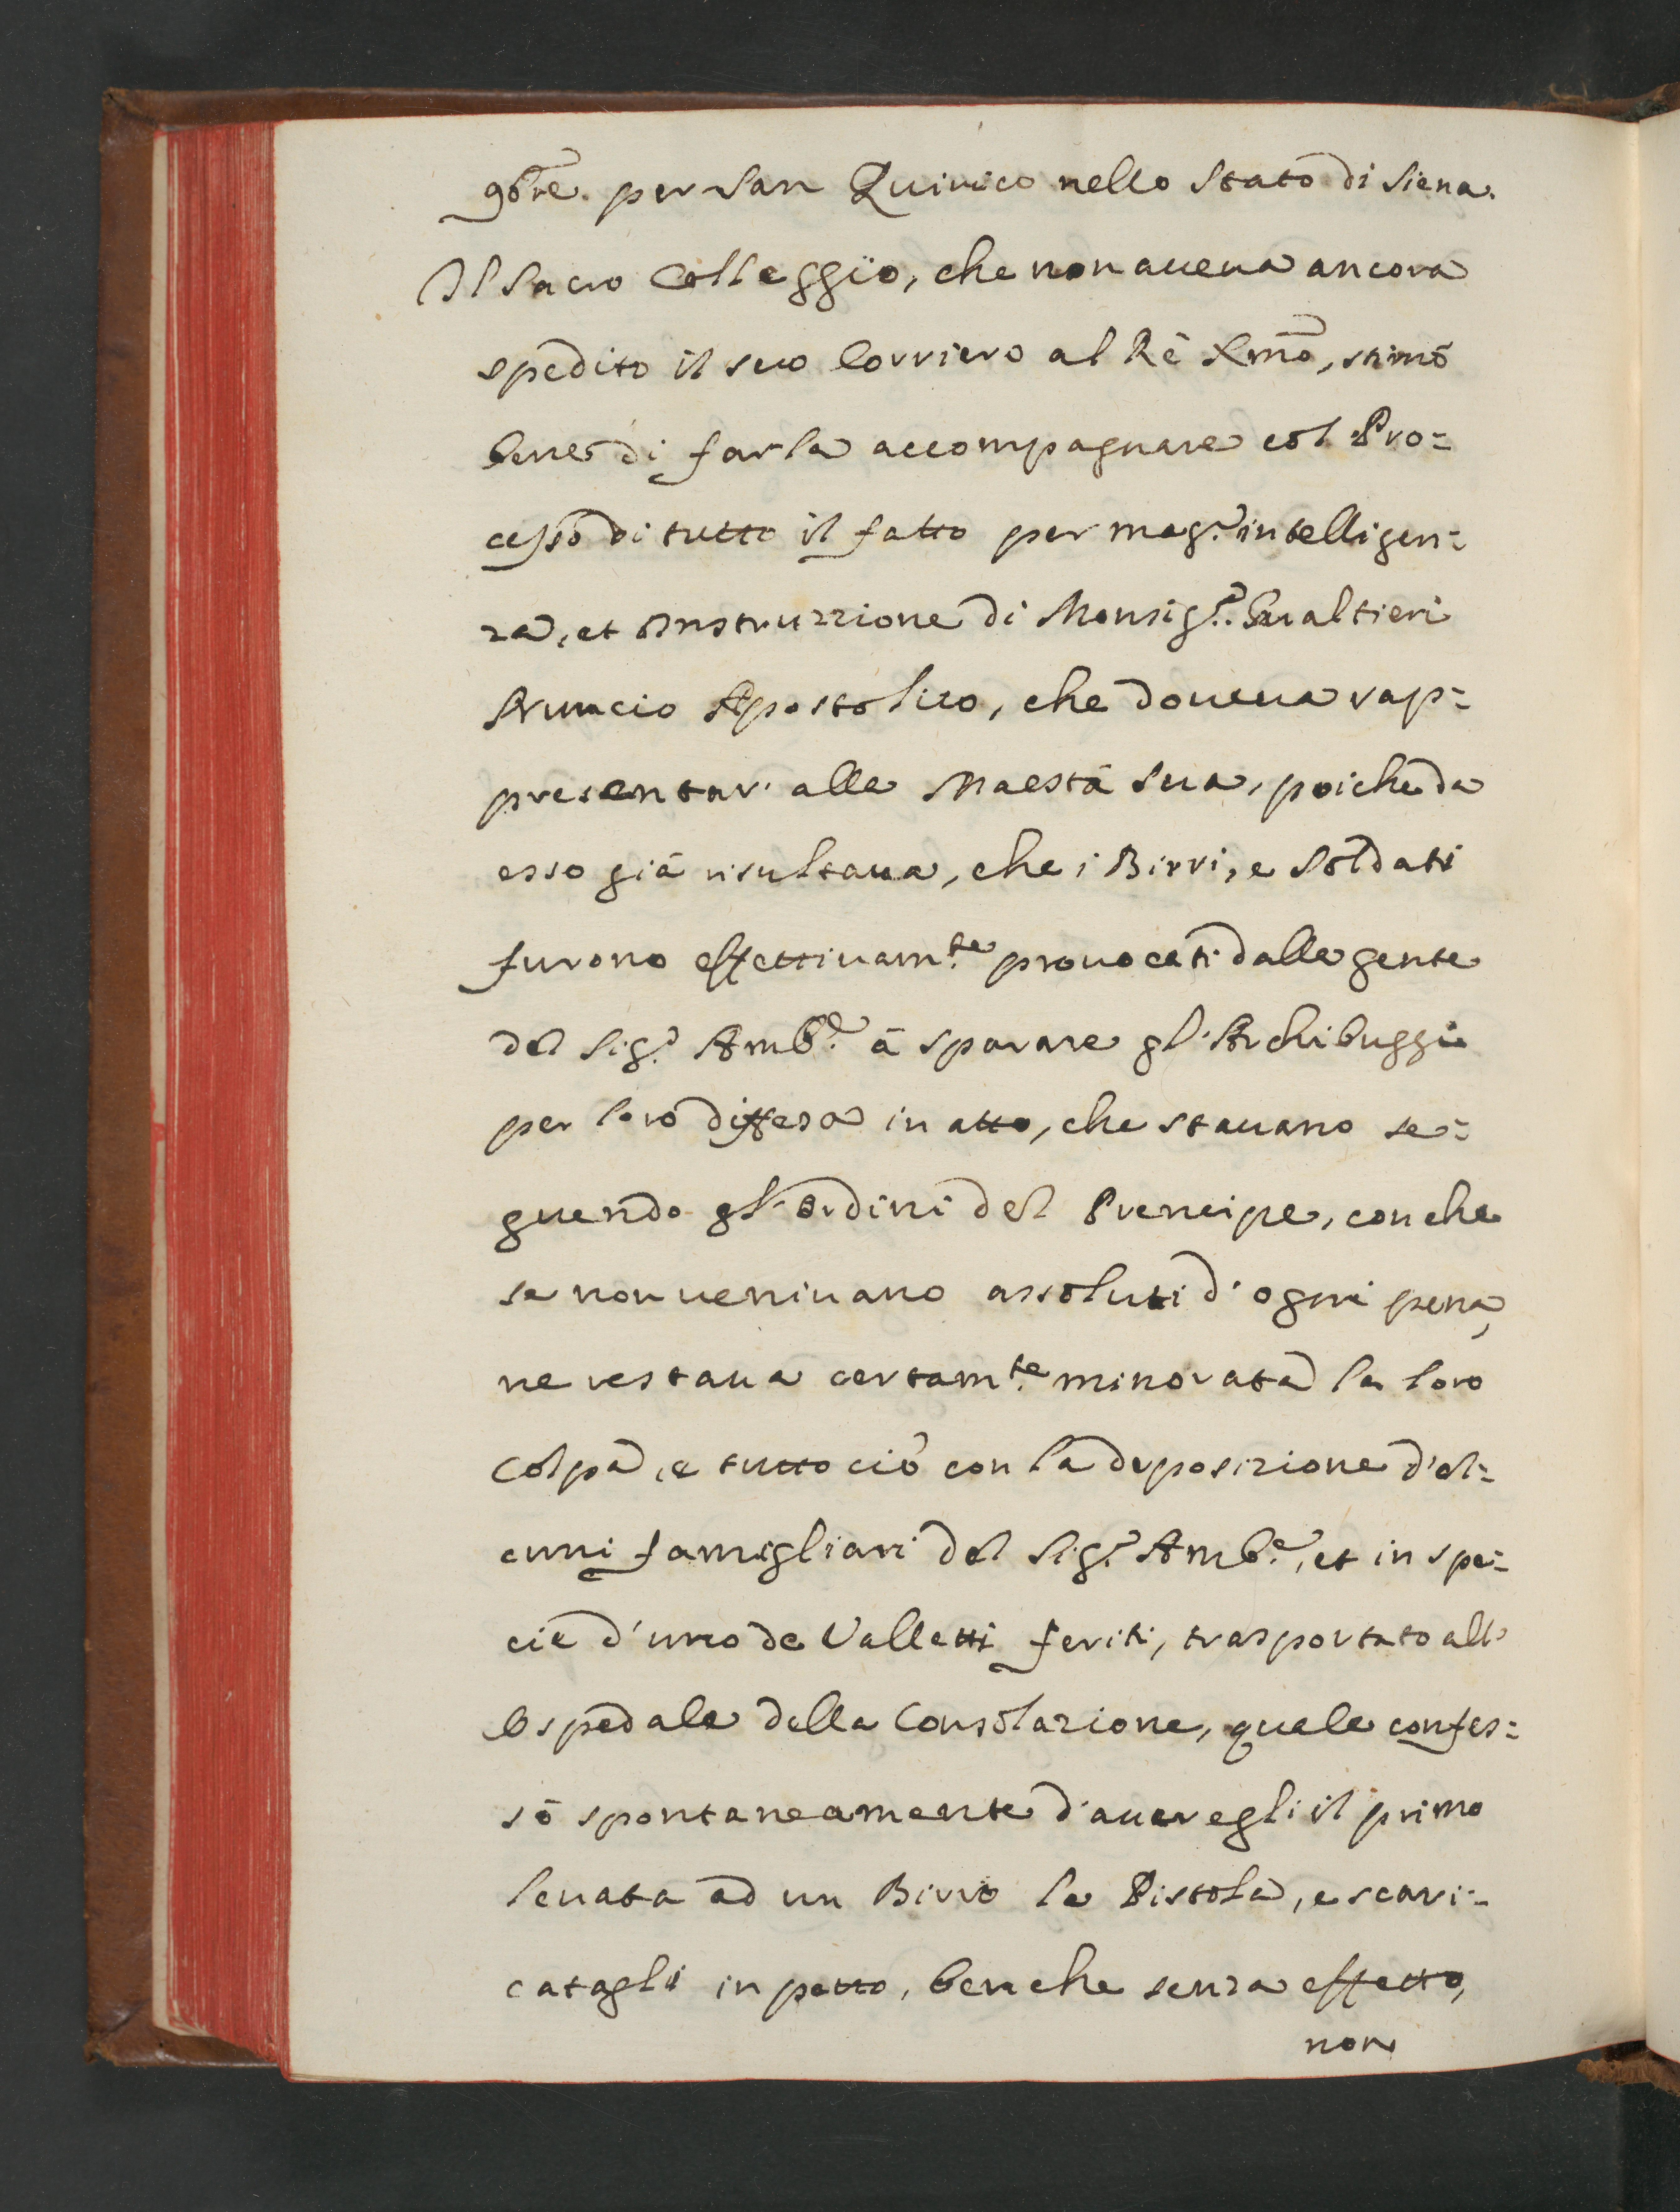 9bre. per San Quirico nello Stato di Siena.
Il Sacro Colleggio, che non aueua ancora
spedito il suo Corriero al Rè Xmo, stimò
bene di farla accompagnare col Pro=
cesso di tutto il fatto per mag.r intelligen=
za, et Instruzzione di Monsig.r Gualtieri
Nuncio Apostolico, che doueua rap=
presentar' alla Maestà Sua, poiche da
esso già risultaua, che i Birri, e Soldati
furono effettiuam.te prouocati dalla gente
del Sig.r Amb.re à sparare gl'Archibuggi
per loro diffesa in atto, che stauano se=
guendo gl'Ordini del Prencipe, con che
se non ueniuano assoluti d'ogni pena,
ne restaua certam.te minorata la loro
colpa, e tutto ciò con la deposizione d'al=
cuni famigliari del Sig.r Amb.re, et in spe=
cie d'uno de Valletti feriti, trasportato all'
Ospedale della Consolazione, quale confes=
sò spontaneamente d'auer egli il primo
leuata ad un Birro la Pistola, e scari=
catagli in petto, benche senza effetto,
non